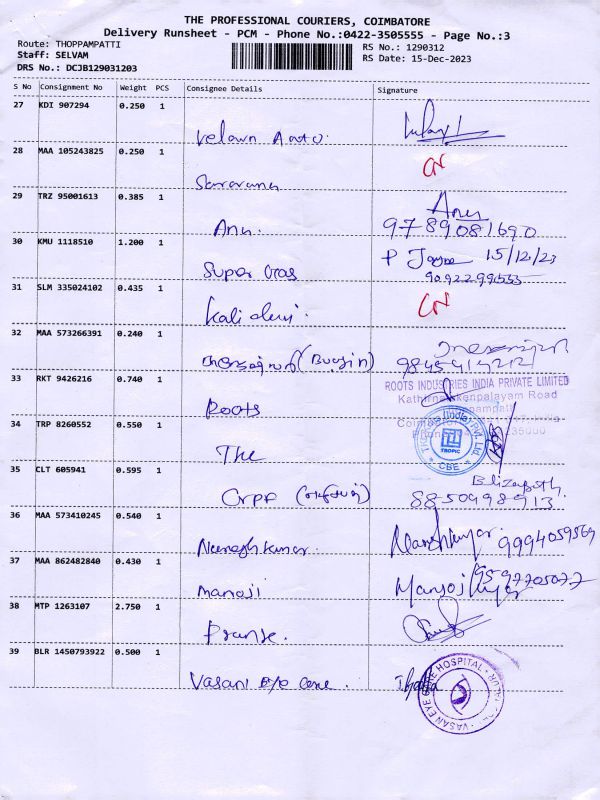 THE PROFESSIONAL COURIERS, COIMBATORE
Delivery Runsheet - PCM - Phone No.:0422-3505555 - Page No.:3
Route: THOPPAMPATTI
RS No.: 1290312
Staff: SELVAM
RS Date: 15-Dec-2023
DRS No.: DCJB129031203
S No Consignment No Weight PCS Consignee Details Signature
27 KDI 907294 0.250 1
Velavn Auto.
28 MAA 105243825 0.250 1
Saravana
29 TRZ 95001613 0.385 1
Anu
Anu. 9789081690
30 KMU 1118510 1.200 1
P 15/12/23
Super Gas 9092299555
31 SLM 335024102 0.435 1
Kali devi.
32 MAA 573266391 0.240 1
33 RKT 9426216 0.740 1
ROOTS INDUSTRIES INDIA PRIVATE LIMITED
Road
Roots
34 TRP 8260552 0.550 1
TROPIC
CBE
The
35 CLT 605941 0.595 1
Elizabeth
CRPF 8850998913
36 MAA 573410245 0.540 1
Nareshkumar. 9994059569
37 MAA 862482840 0.430 1
9597705077
Manoji
38 MTP 1263107 2.750 1
39 BLR 1450793922 0.500 1
Vasan Eye Care.
VASAN EYE CARE HOSPITAL